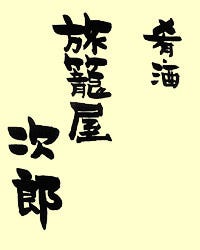 肴酒
旅籠屋
次郎